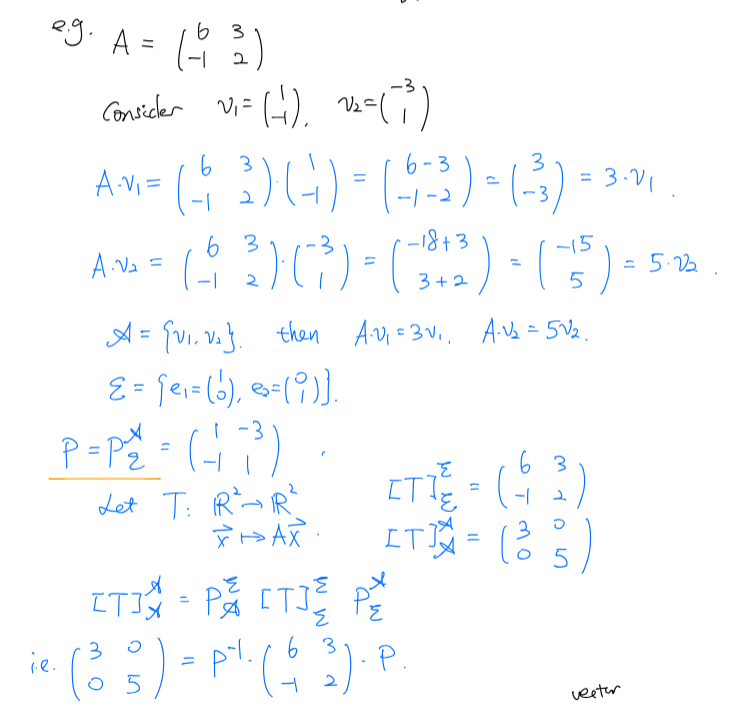 e.g. A = (6 3 / -1 2)
Consider v₁ = (1 / -1), v₂ = (-3 / 1)
A·v₁ = (6 3 / -1 2)·(1 / -1) = (6-3 / -1-2) = (3 / -3) = 3·v₁.
A·v₂ = (6 3 / -1 2)·(-3 / 1) = (-18+3 / 3+2) = (-15 / 5) = 5·v₂.
𝒜 = {v₁, v₂}. then A·v₁ = 3v₁, A·v₂ = 5v₂.
ℰ = {e₁ = (1 / 0), e₂ = (0 / 1)}.
P = P_ℰ^𝒜 = (1 -3 / -1 1).
Let T: ℝ² → ℝ²
x⃗ ↦ Ax⃗.
[T]_ℰ^ℰ = (6 3 / -1 2)
[T]_𝒜^𝒜 = (3 0 / 0 5)
[T]_𝒜^𝒜 = P_𝒜^ℰ [T]_ℰ^ℰ P_ℰ^𝒜
i.e. (3 0 / 0 5) = P⁻¹·(6 3 / -1 2)·P.
vector